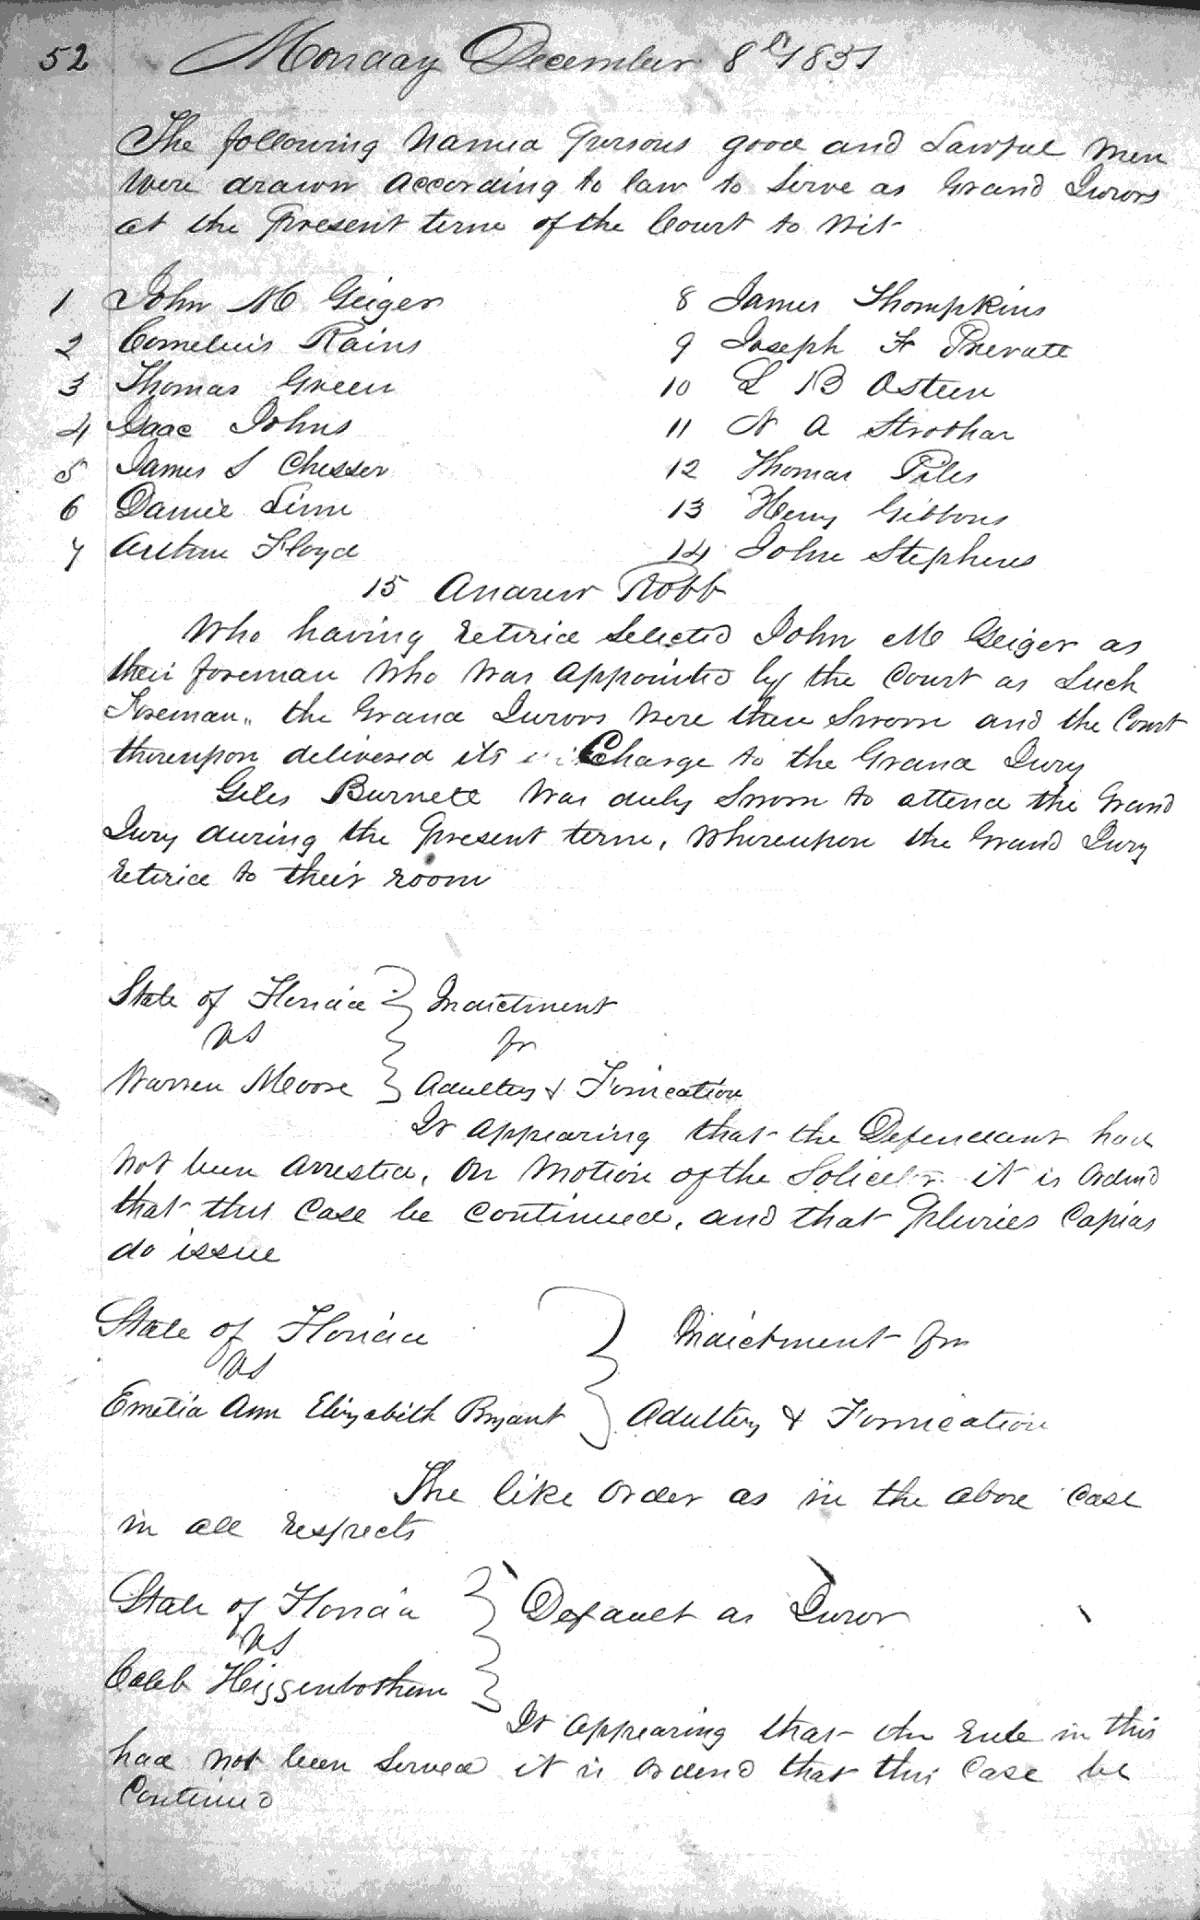 52 Monday December 8th 1851
The following named persons good and Lawful men
were drawn according to law to serve as Grand Jurors
at the Present term of the Court to wit
1 John M Geiger
2 Cornelius Rains
3 Thomas Green
4 Isaac Johns
5 James S Chesser
6 Daniel Linn
7 Arthur Floyd
8 James Thompkins
9 Joseph F Prevatt
10 L B Osteen
11 N A Strobhar
12 Thomas Piles
13 Henry Gibbons
14 John Stephens
15 Andrew Robb
Who having retired Selected John M Geiger as
their foreman who was appointed by the Court as Such
Foreman,, the Grand Jurors were then Sworn and the Court
thereupon delivered its Charge to the Grand Jury
Giles Burnett was duly Sworn to attend the Grand
Jury during the Present term, whereupon the Grand Jury
retired to their room
State of Florida
vs
Warren Moore
Indictment
for
Adultery & Fornication
It appearing that the Defendant had
not been arrested, On motion of the Solicitor it is ordered
that this case be continued, and that Pluries Capias
do issue
State of Florida
vs
Emelia Ann Elizabeth Bryant
Indictment for
Adultery & Fornication
The like order as in the above case
in all respects
State of Florida
vs
Caleb Higgenbotham
Default as Juror
It appearing that the Rule in this
had not been Served it is ordered that this Case be
Continued